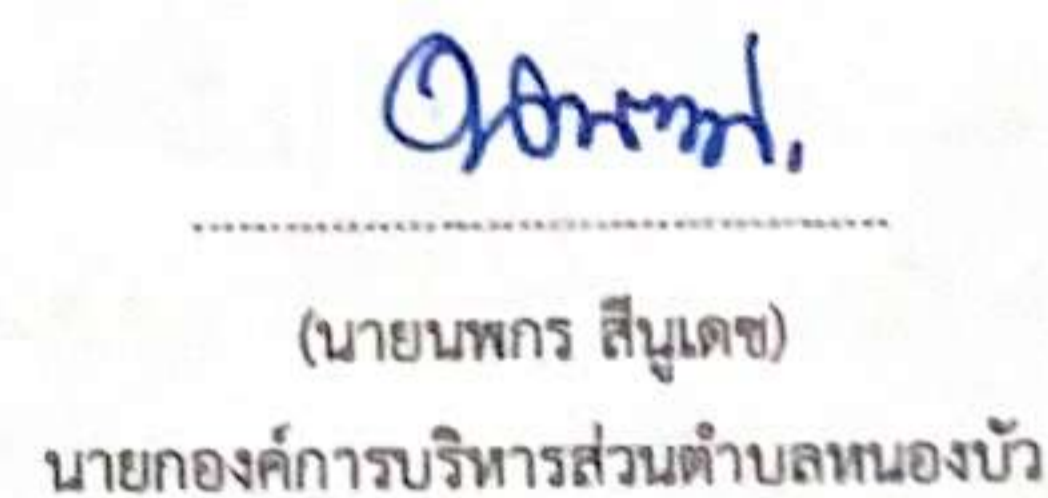 (นายนพกร สีนูเดช)
นายกองค์การบริหารส่วนตำบลหนองบัว